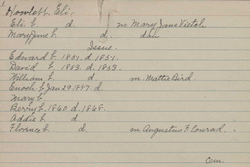 Howlett, Eli.
Eli b. d. m Mary Jane Veitch.
Mary Jane b. d. dau
Issue.
Edward b. 1851. d. 1851.
David b. 1853. d. 1853.
William b. d. m. Mattie Bird
Enoch b. Jan 29. 1857. d.
Mary b.
Berry b. 1860 d. 1865.
Addie b. d.
Florence b. d. m Augustus F. Conrad.
Cem.